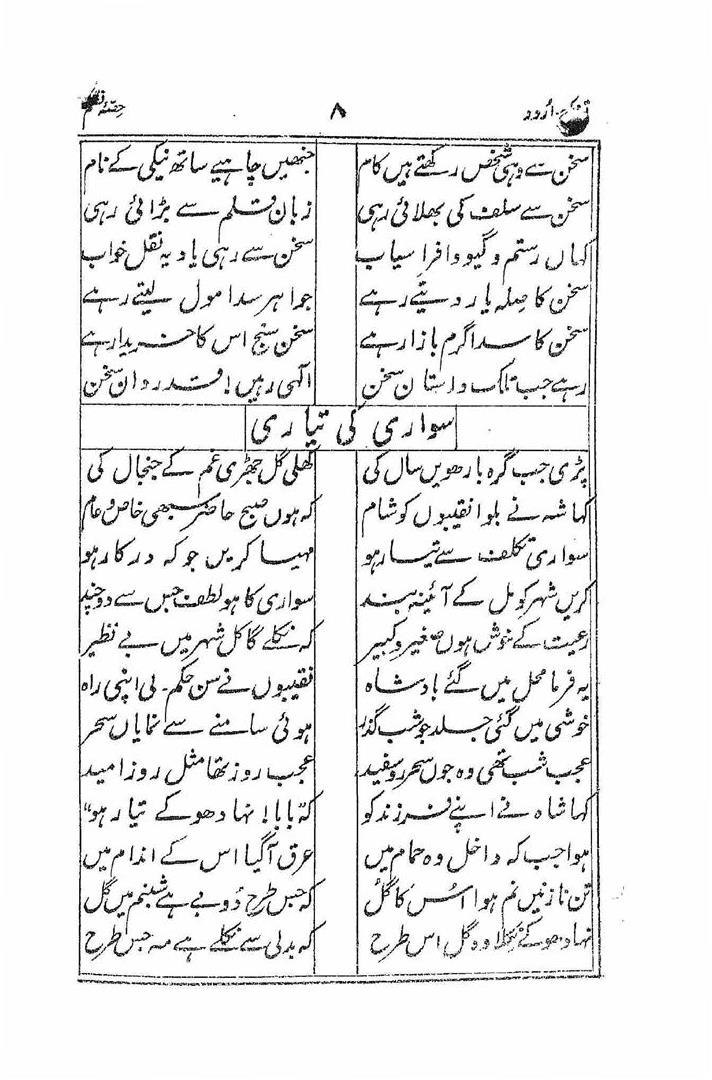 اُردو ۸ حصۂ نظم
سخن سے وہی شخص رکھتے ہیں کام جنھیں چاہیے ساتھ نیکی کے نام
سخن سے سلف کی بھلائی رہی زبانِ قلم سے بڑائی رہی
کہاں رستم و گیو و افراسیاب سخن سے رہی یاد یہ نقل خواب
سخن کا صلہ یار دیتے رہے جواہر سدا مول لیتے رہے
سخن کا سدا گرم بازار ہے سخن سنج اس کا خریدار ہے
رہے جب تلک داستان سخن الٰہی رہیں! قدردان سخن
سواری کی تیاری
پڑی جب گرہ بارھویں سال کی کھلی گل جھڑی غم کے جنجال کی
کہا شہ نے بلوا نقیبوں کو شام کہ ہوں صبح حاضر سبھی خاص و عام
سواری تکلف سے تیار ہو مہیا کریں جو کہ درکار ہو
کریں شہر کو مل کے آئینہ بند سواری کا ہو لطف جس سے دو چند
رعیت کے خوش ہوں صغیر و کبیر کہ نکلے گا کل شہر میں بے نظیر
یہ فرما محل میں گئے بادشاہ نقیبوں نے سن حکم۔ لی اپنی راہ
خوشی میں گئی جلد جو شب گذر ہوئی سامنے سے نمایاں سحر
عجب شب تھی وہ جوں سحر رو سفید عجب روز تھا مثل روز امید
کہا شاہ نے اپنے فرزند کو کہ بابا! نہا دھو کے تیار ہو"
ہوا جب کہ داخل وہ حمام میں عرق آ گیا اس کے اندام میں
تن نازنیں نم ہوا اُس کا کُل کہ جس طرح ڈوبے ہے شبنم میں گل
نہا دھو کے نکلا وہ گل اس طرح کہ بدلی سے نکلے ہے مہ جس طرح